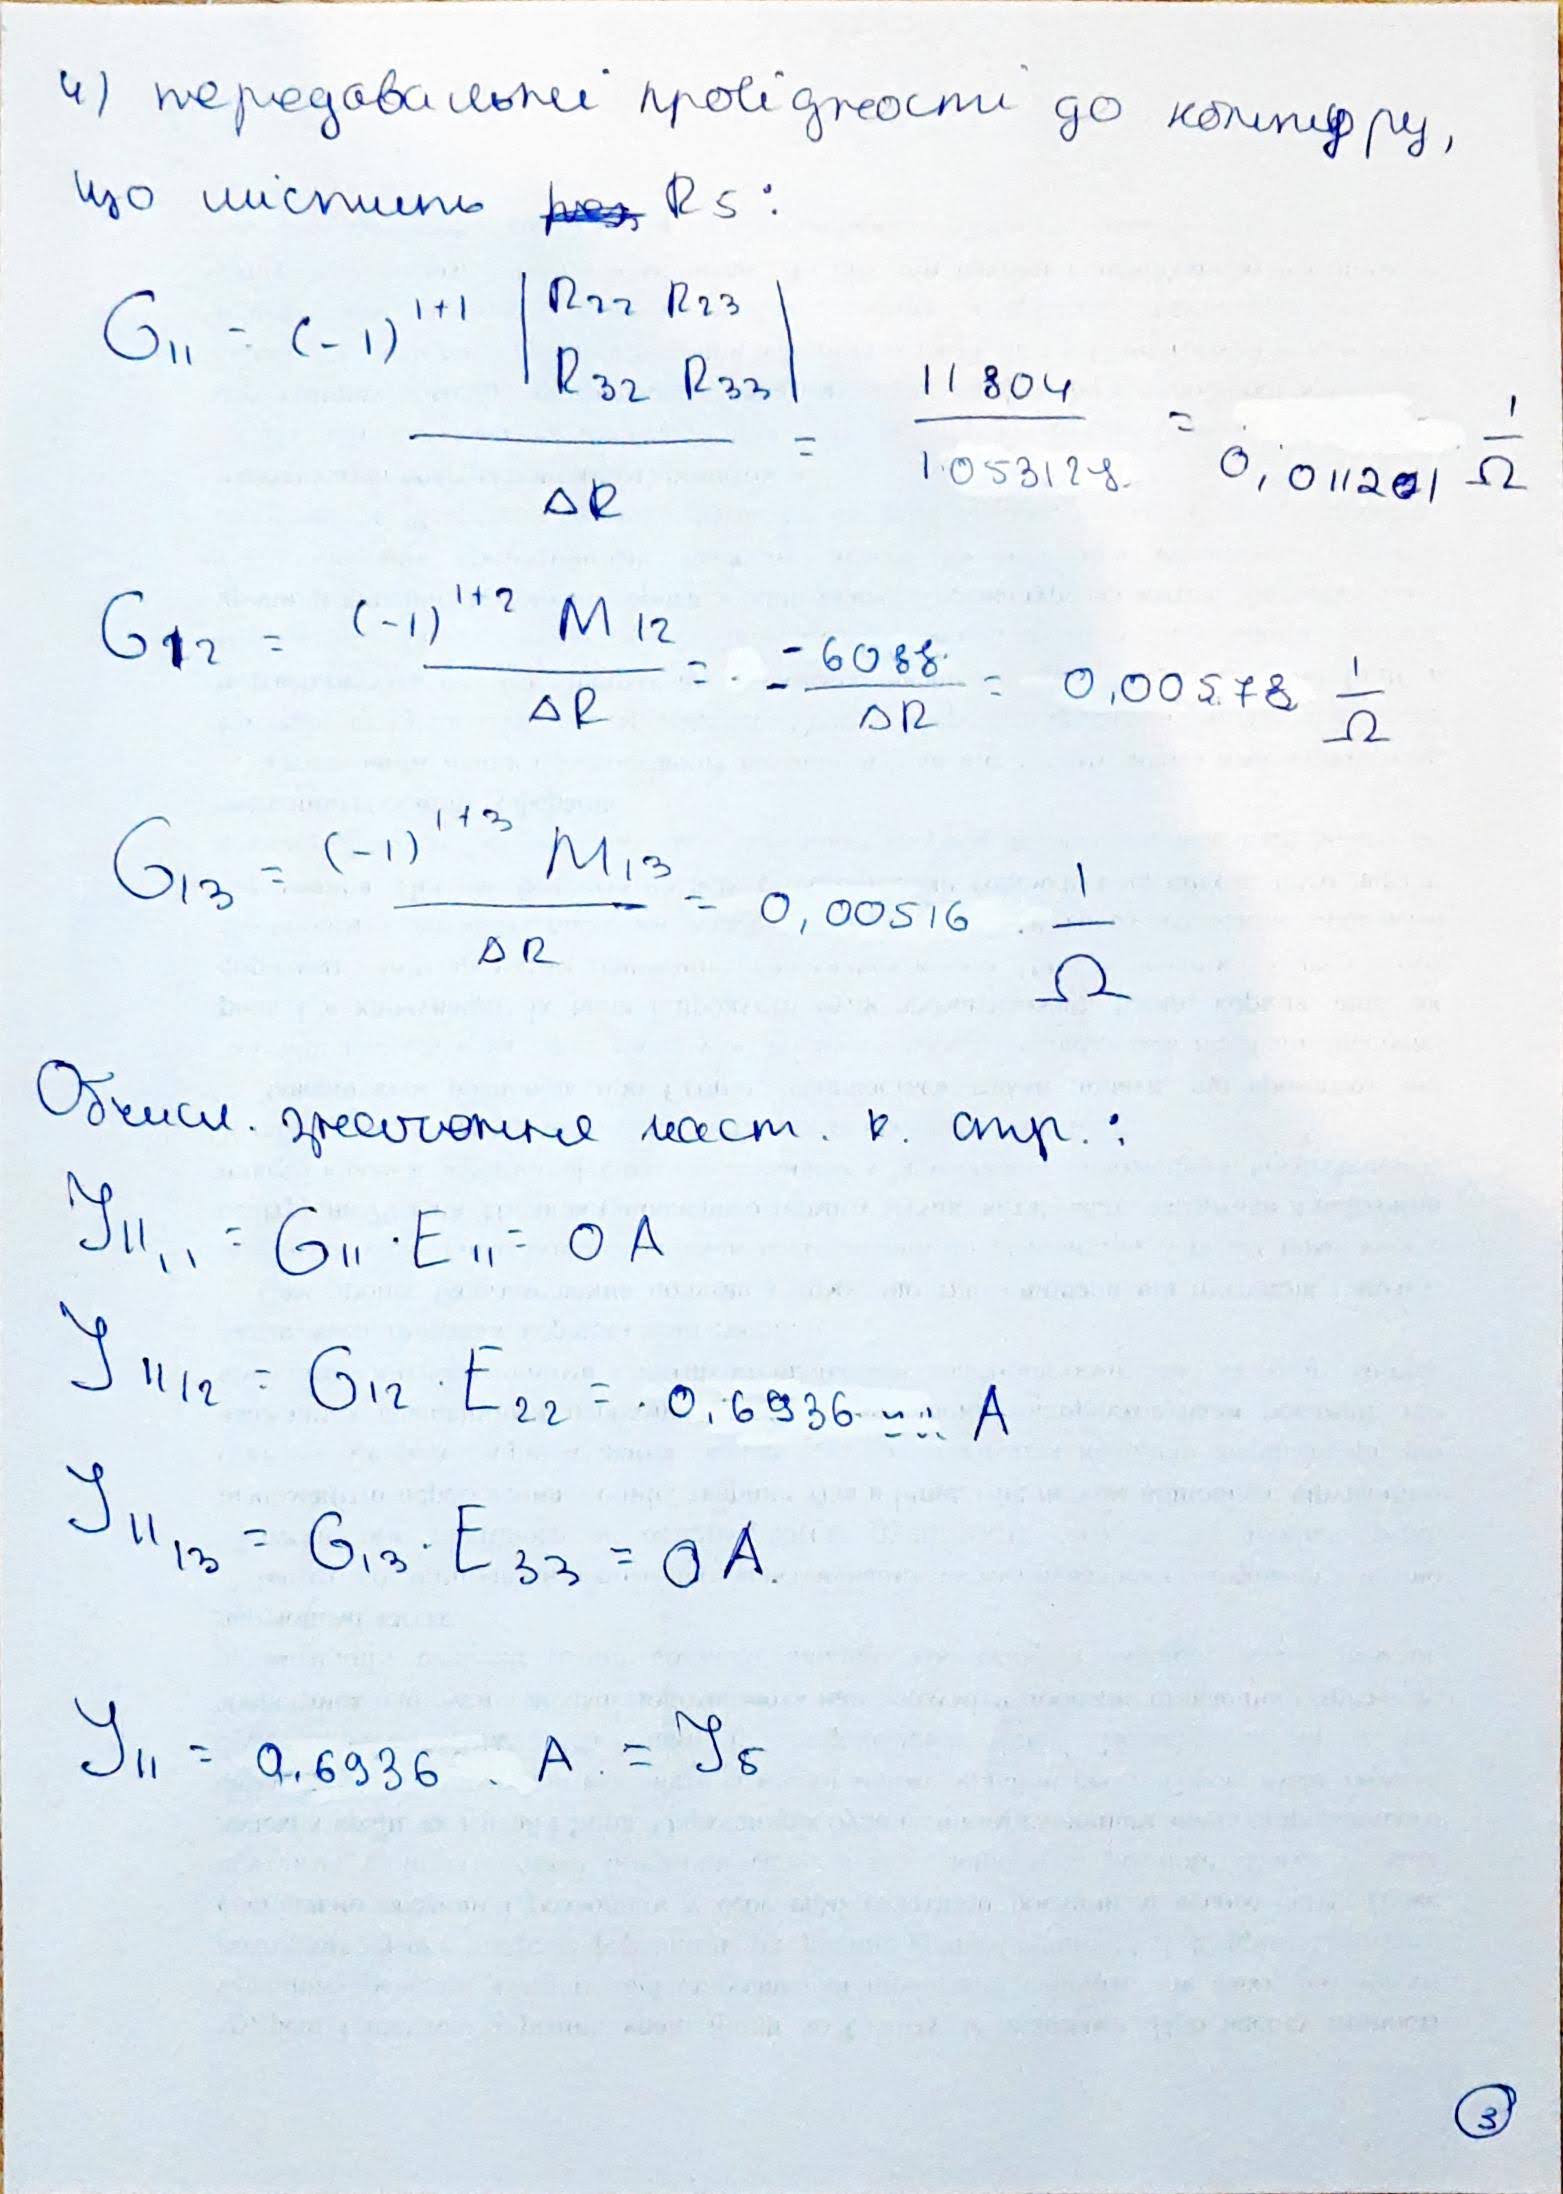 4) передавальні провідності до контуру,
що містить R5:
G11 = (-1)^(1+1) |R22 R23; R32 R33| / ΔR = 11804 / 1053128 = 0,011201 1/Ω
G12 = (-1)^(1+2) M12 / ΔR = - -6088 / ΔR = 0,00578 1/Ω
G13 = (-1)^(1+3) M13 / ΔR = 0,00516 1/Ω
Обчисл. значення част. к. стр.:
J11 11 = G11 · E11 = 0 A
J11 12 = G12 · E22 = 0,6936 A
J11 13 = G13 · E33 = 0 A
J11 = 0,6936 A = J5
3